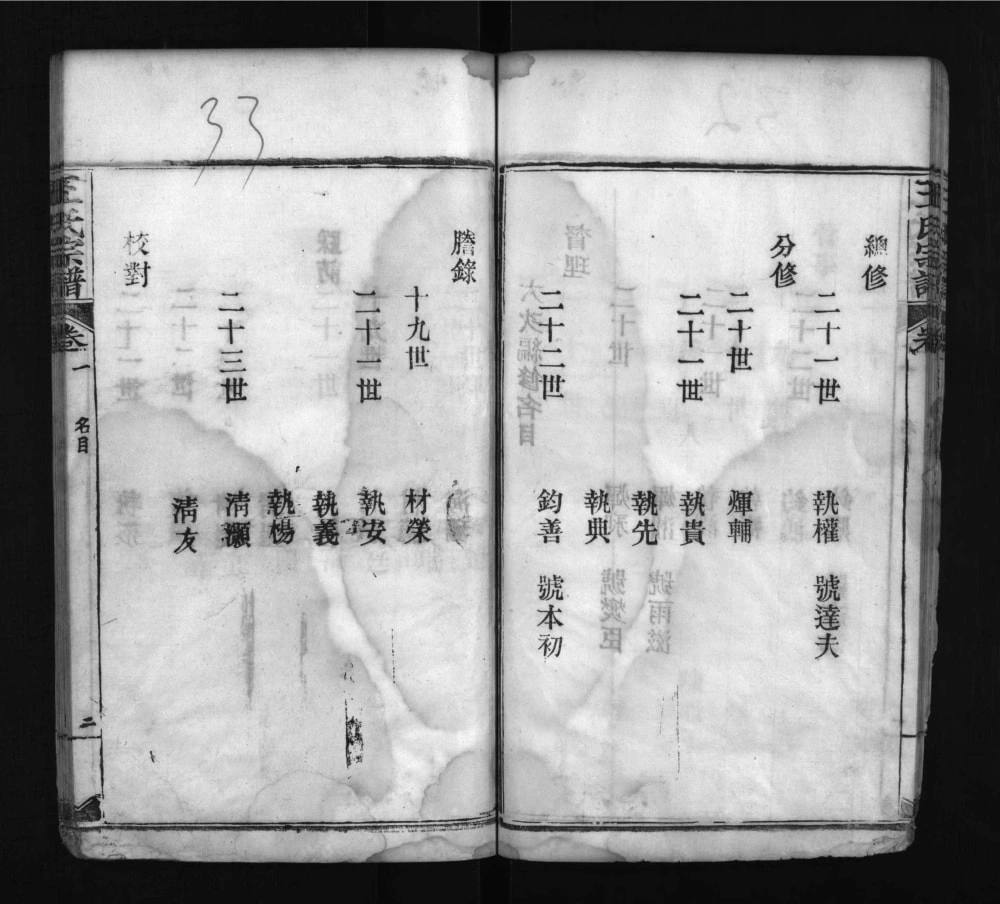 總修
二十一世 執權 號達夫
分修
二十世 煇輔
二十一世 執貴
執先
執典
二十二世 鈞善 號本初
王氏宗譜 卷一
33
謄錄
十九世 材榮
二十一世 執安
執義
執楊
二十三世 清灝
清友
校對
王氏宗譜 卷一 名目 二